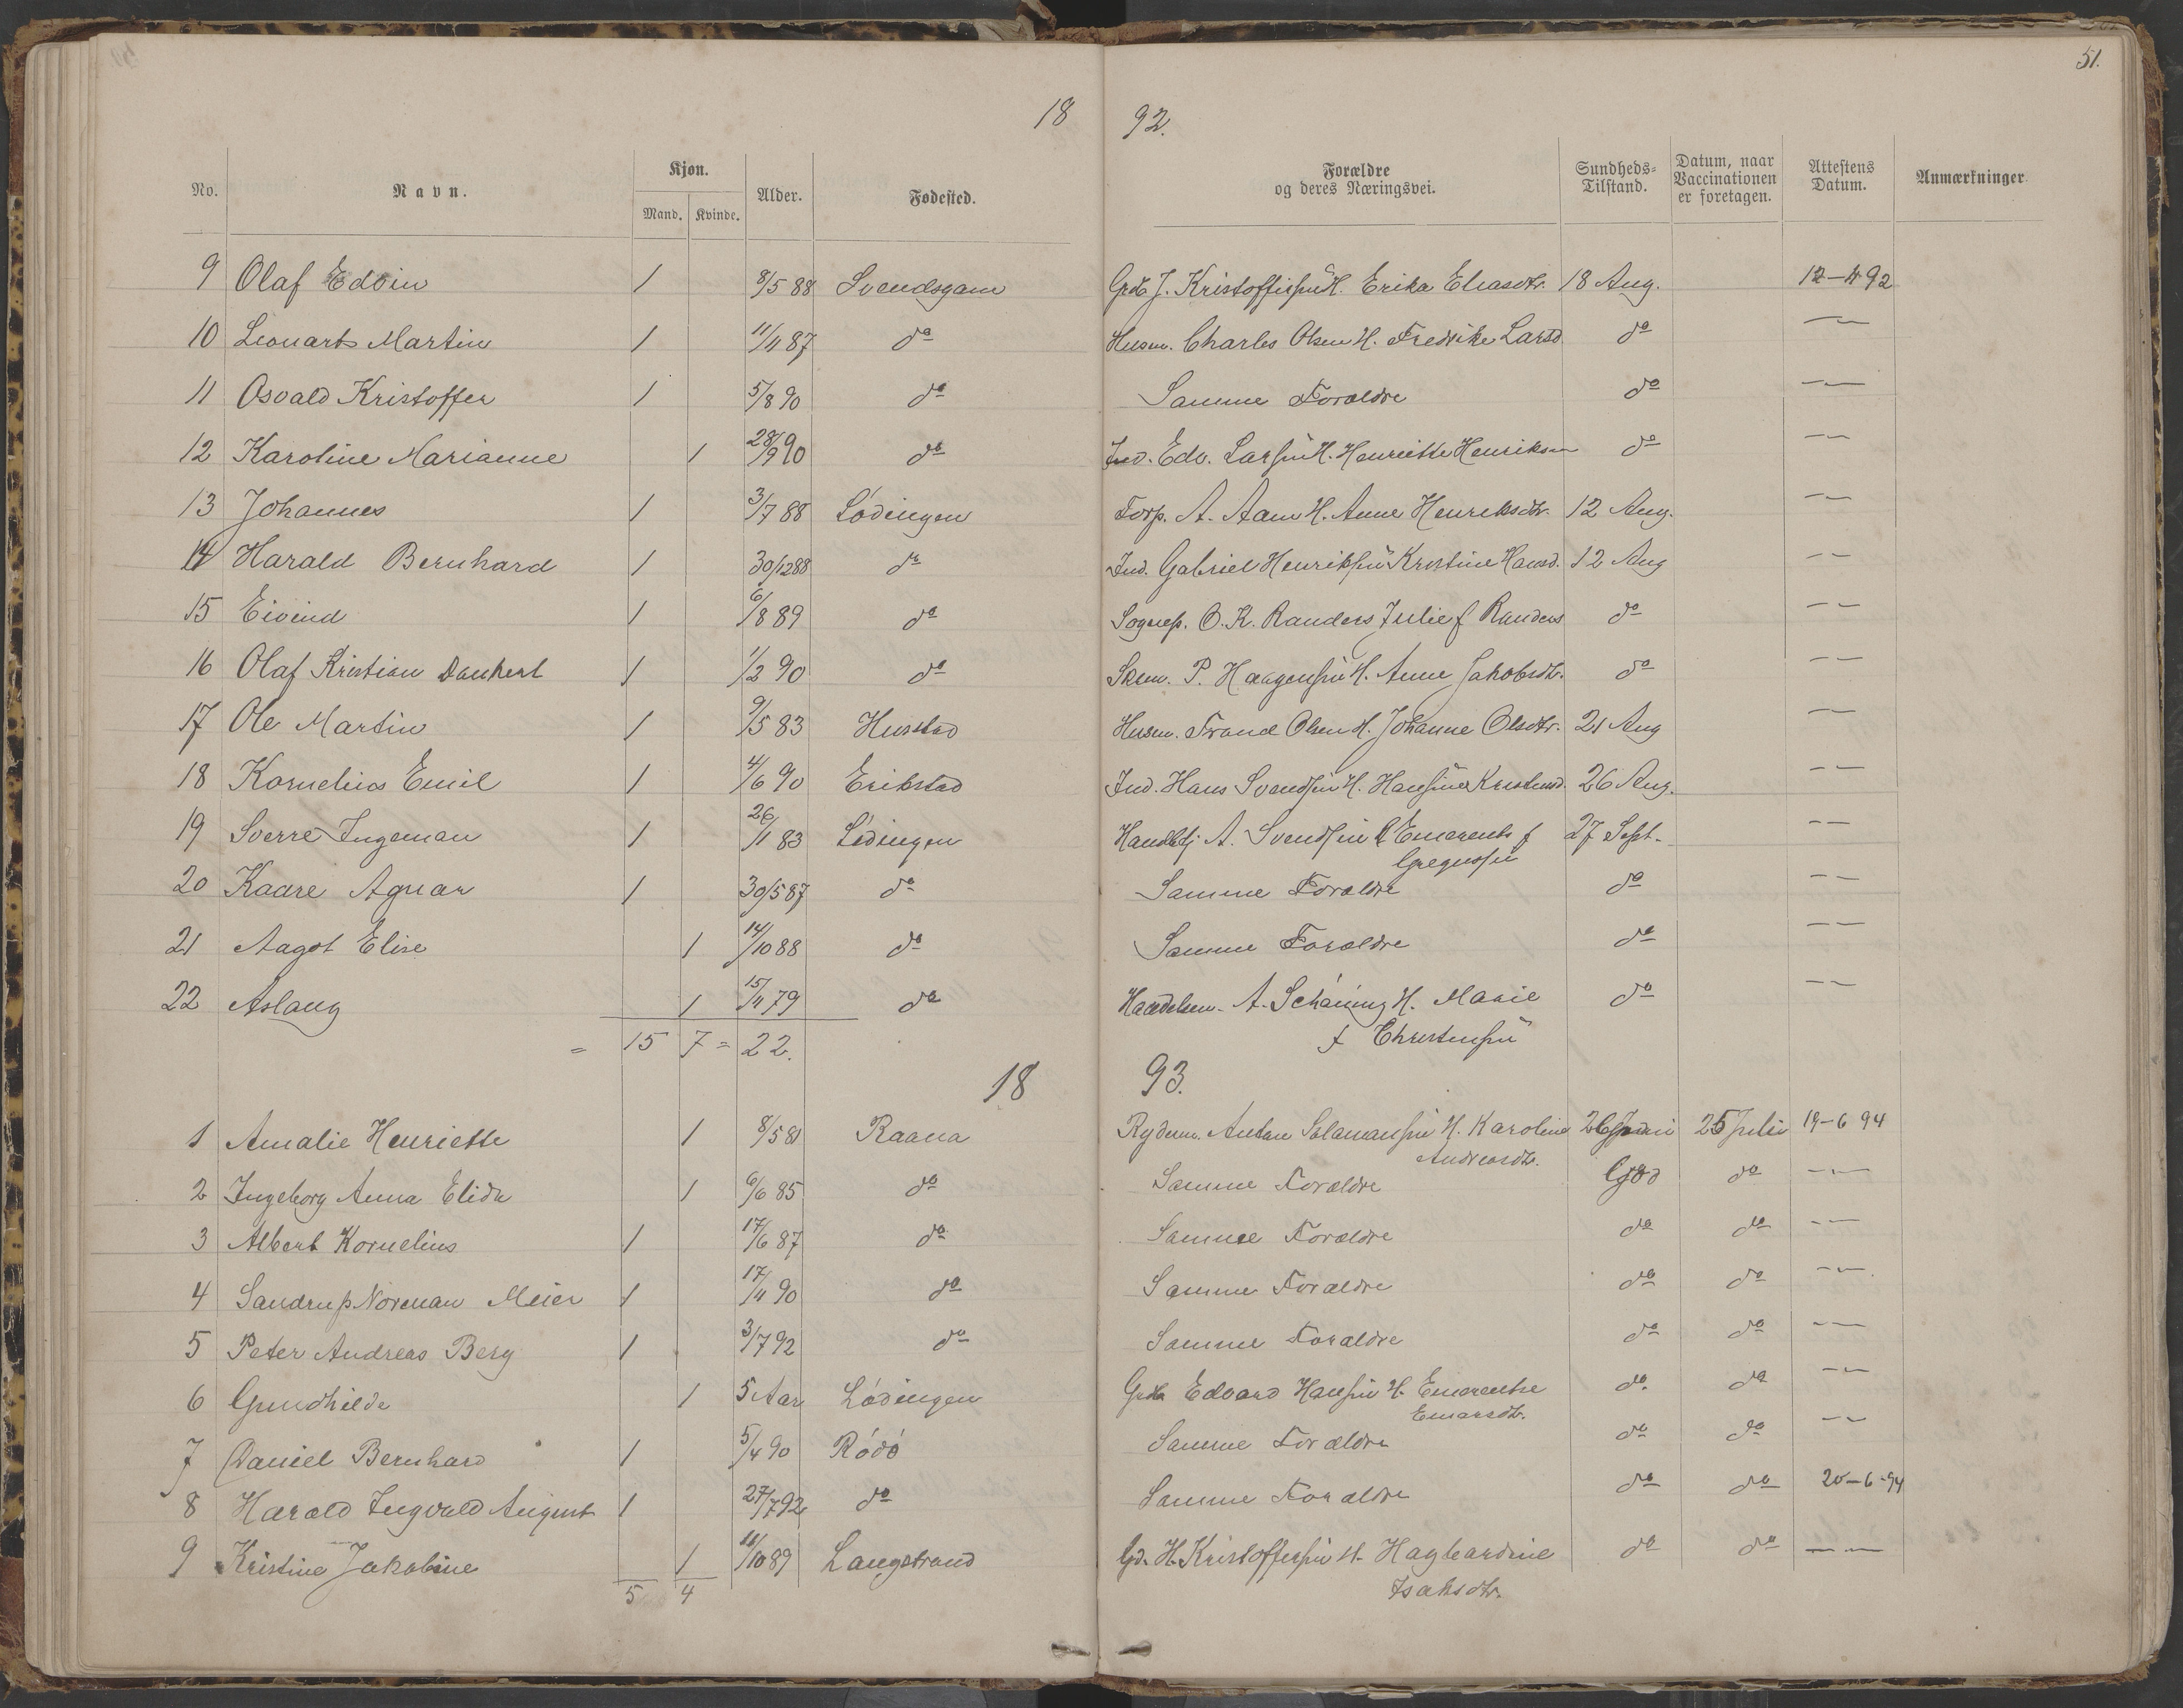 51.
18 92.
No. Navn. Kjøn. Mand. Kvinde. Alder. Fødested. Forældre og deres Næringsvei. Sundheds-Tilstand. Datum, naar Vaccinationen er foretagen. Attestens Datum. Anmærkninger
9 Olaf Edvin 1 8/5 88 Svendsgam Grdb. J. Kristoffersen H. Erika Eliasdtr. 18 Aug. 12–4 92
10 Leonart Martin 1 11/11 87 do Husm. Charles Olsen H. Fredrike Larsd. do — —
11 Osvald Kristoffer 1 5/8 90 do Samme Forældre do — —
12 Karoline Marianne 1 28/9 90 do Ind. Edv. Larsen H. Henriette Henriksen do — —
13 Johannes 1 3/7 88 Lødingen Forp. A. Aam H. Anne Henriksdtr. 12 Aug. — —
14 Harald Bernhard 1 30/12 88 do Ind. Gabriel Henriksen Kristine Hansd. 12 Aug — —
15 Eivind 1 6/8 89 do Sognep. O. K. Randers Julie f Randers do — —
16 Olaf Kristian Dankert 1 1/2 90 do P. Haagensen H. Anne Jakobsdtr. do — —
17 Ole Martin 1 9/5 83 Hustad Husm. Olsen H. Johanne Olsdtr. 21 Aug — —
18 Kornelius Emil 1 4/6 90 Erikstad Ind. Hans Svendsen H. Hansine Kristensd. 26 Aug. — —
19 Sverre Ingeman 1 26/11 83 Lødingen A. Svendsen Emerents f 27 Sept. — —
Gregussen
20 Kaare Agnar 1 30/5 87 do Samme Forældre do — —
21 Aagot Elise 1 14/10 88 do Samme Forældre do — —
22 Aslaug 1 15/11 79 do Handelsm. A. Schøning H. Marie do — —
f Christensen
= 15 7 = 22.
18 93.
1 Amalie Henriette 1 8/5 81 Raana Rydm. Anton Salamonsen H. Karoline 26 Juni 25 Juli 19–6 94
Andreasdtr.
2 Ingeborg Anna Elida 1 6/6 85 do Samme Forældre God do — —
3 Albert Kornelius 1 17/6 87 do Samme Forældre do do — —
4 Sandrup Norman Meier 1 17/11 90 do Samme Forældre do do — —
5 Peter Andreas Berg 1 3/7 92 do Samme Forældre do do — —
6 Gundhilde 1 5 Aar Lødingen Grdb. Edvard Hansen H. Emerentse do. do — —
Emarsdtr.
7 Daniel Bernhard 1 5/4 90 Rødø Samme Forældre do do — —
8 Harald Ingvald August 1 27/7 92 do Samme Forældre do do 20–6–94
9 Kristine Jakobine 1 11/10 89 Langstrand Gd. H. Kristoffersen H. Hagbardine do do — —
Isaksdtr.
5 4